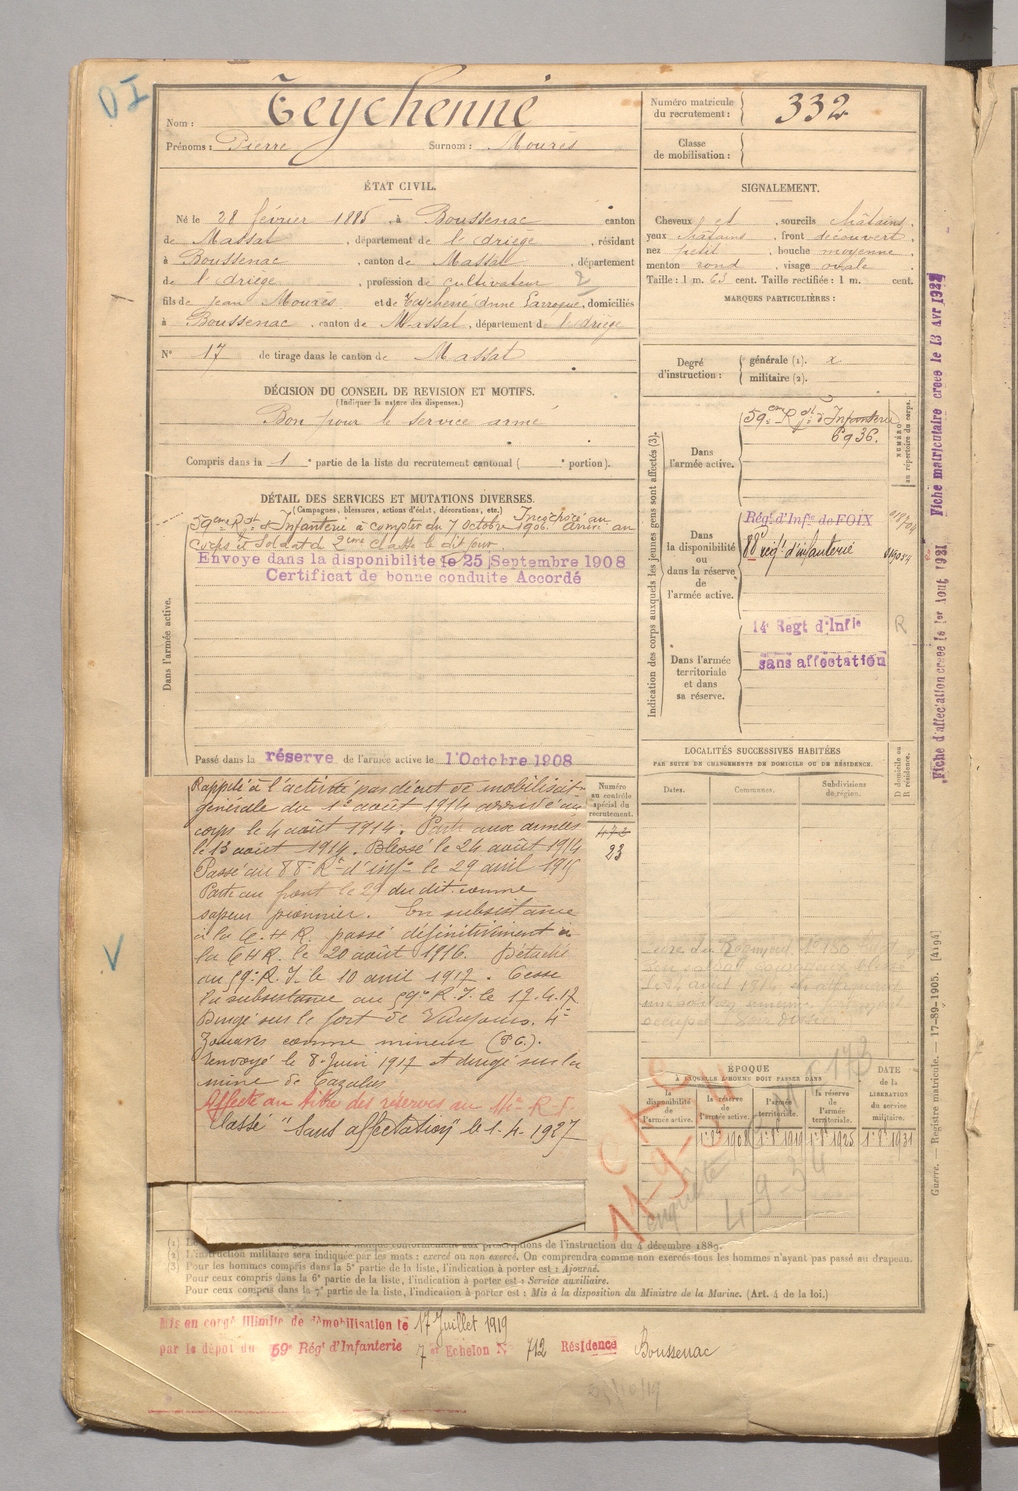 Nom : Teychenné
Prénoms : Pierre Surnom : Mourès
Numéro matricule du recrutement : 332
Classe de mobilisation :
ÉTAT CIVIL.
Né le 28 février 1885, à Boussenac canton
de Massat, département de l'Ariège, résidant
à Boussenac, canton de Massat, département
de l'Ariège, profession de cultivateur 2
fils de Jean Mourès et de Anne Larroque, domiciliés
à Boussenac, canton de Massat, département de l'Ariège
N° 17 de tirage dans le canton de Massat
SIGNALEMENT.
Cheveux et, sourcils châtains,
yeux châtains, front découvert,
nez petit, bouche moyenne,
menton rond, visage ovale
Taille : 1 m. 63 cent. Taille rectifiée : 1 m. cent.
MARQUES PARTICULIÈRES :
DÉCISION DU CONSEIL DE REVISION ET MOTIFS.
(Indiquer la nature des dispenses.)
Bon pour le service armé
Compris dans la 1e partie de la liste du recrutement cantonal ( portion).
Degré d'instruction :
générale (1). x
militaire (2).
DÉTAIL DES SERVICES ET MUTATIONS DIVERSES.
(Campagnes, blessures, actions d'éclat, décorations, etc.)
59ème Rgt d'Infanterie à compter du 7 octobre 1906. Incorporé au
corps et soldat de 2ème classe le dit jour
Envoyé dans la disponibilité le 25 Septembre 1908
Certificat de bonne conduite Accordé
Dans l'armée active.
Passé dans la réserve de l'armée active le 1 Octobre 1908
Indication des corps auxquels les jeunes gens sont affectés (3).
Dans l'armée active.
59ème Rgt d'Infanterie
6936.
NUMÉRO au répertoire du corps.
Dans la disponibilité ou dans la réserve de l'armée active.
Régt d'Infie de FOIX
88e régt d'infanterie
Dans l'armée territoriale et dans sa réserve.
14e Regt d'Infie
sans affectation
R
LOCALITÉS SUCCESSIVES HABITÉES
PAR SUITE DE CHANGEMENTS DE DOMICILE OU DE RÉSIDENCE.
Dates.
Communes.
Subdivisions de région.
D domicile ou R résidence.
Rappelé à l'activité par décret de mobilisation
générale du 1er août 1914 arrivé au
corps le 4 août 1914. Parti aux armées
le 13 août 1914. Blessé le 24 août 1914
Passé au 88e Rt d'inf. le 29 avril 1915
Parti au front le 29 du dit comme
sapeur pionnier. En subsistance
à la C.H.R. passé définitivement à
la C H R. le 20 août 1916. Détaché
au 59e R. I. le 10 avril 1917. Cesse
la subsistance au 59e R. I. le 17.4.17
Dirigé sur le fort de Vaujours. 4e
Zouaves comme mineur
renvoyé le 8 Juin 1917 et dirigé sur la
mine de
Affecté au titre des réserves au R.I.
Classé "Sans affectation" le 1.4.1927
Numéro au contrôle spécial du recrutement.
23
ÉPOQUE
À LAQUELLE L'HOMME DOIT PASSER DANS
la disponibilité de l'armée active.
la réserve de l'armée active.
l'armée territoriale.
la réserve de l'armée territoriale.
DATE de la LIBÉRATION du service militaire.
1er 8bre 1908
1er 8bre 1919
1er 8bre 1925
1er 8bre 1931
enquête
4-9-34
(2) L'instruction militaire sera indiquée par les mots : exercé ou non exercé. On comprendra comme non exercés tous les hommes n'ayant pas passé au drapeau.
(3) Pour les hommes compris dans la 5e partie de la liste, l'indication à porter est : Ajourné.
Pour ceux compris dans la 6e partie de la liste, l'indication à porter est : Service auxiliaire.
Pour ceux compris dans la 7e partie de la liste, l'indication à porter est : Mis à la disposition du Ministre de la Marine. (Art. 4 de la loi.)
Mis en congé illimité de démobilisation le 17 Juillet 1919
par le dépôt du 59e Régt d'Infanterie 7e Echelon N° 712 Résidence Boussenac
Guerre. — Registre matricule. — 17-89-1905. [4194]
Fiche d'affectation créée le 1er Aout 1931
Fiche matriculaire créée le 13 Avr 1932